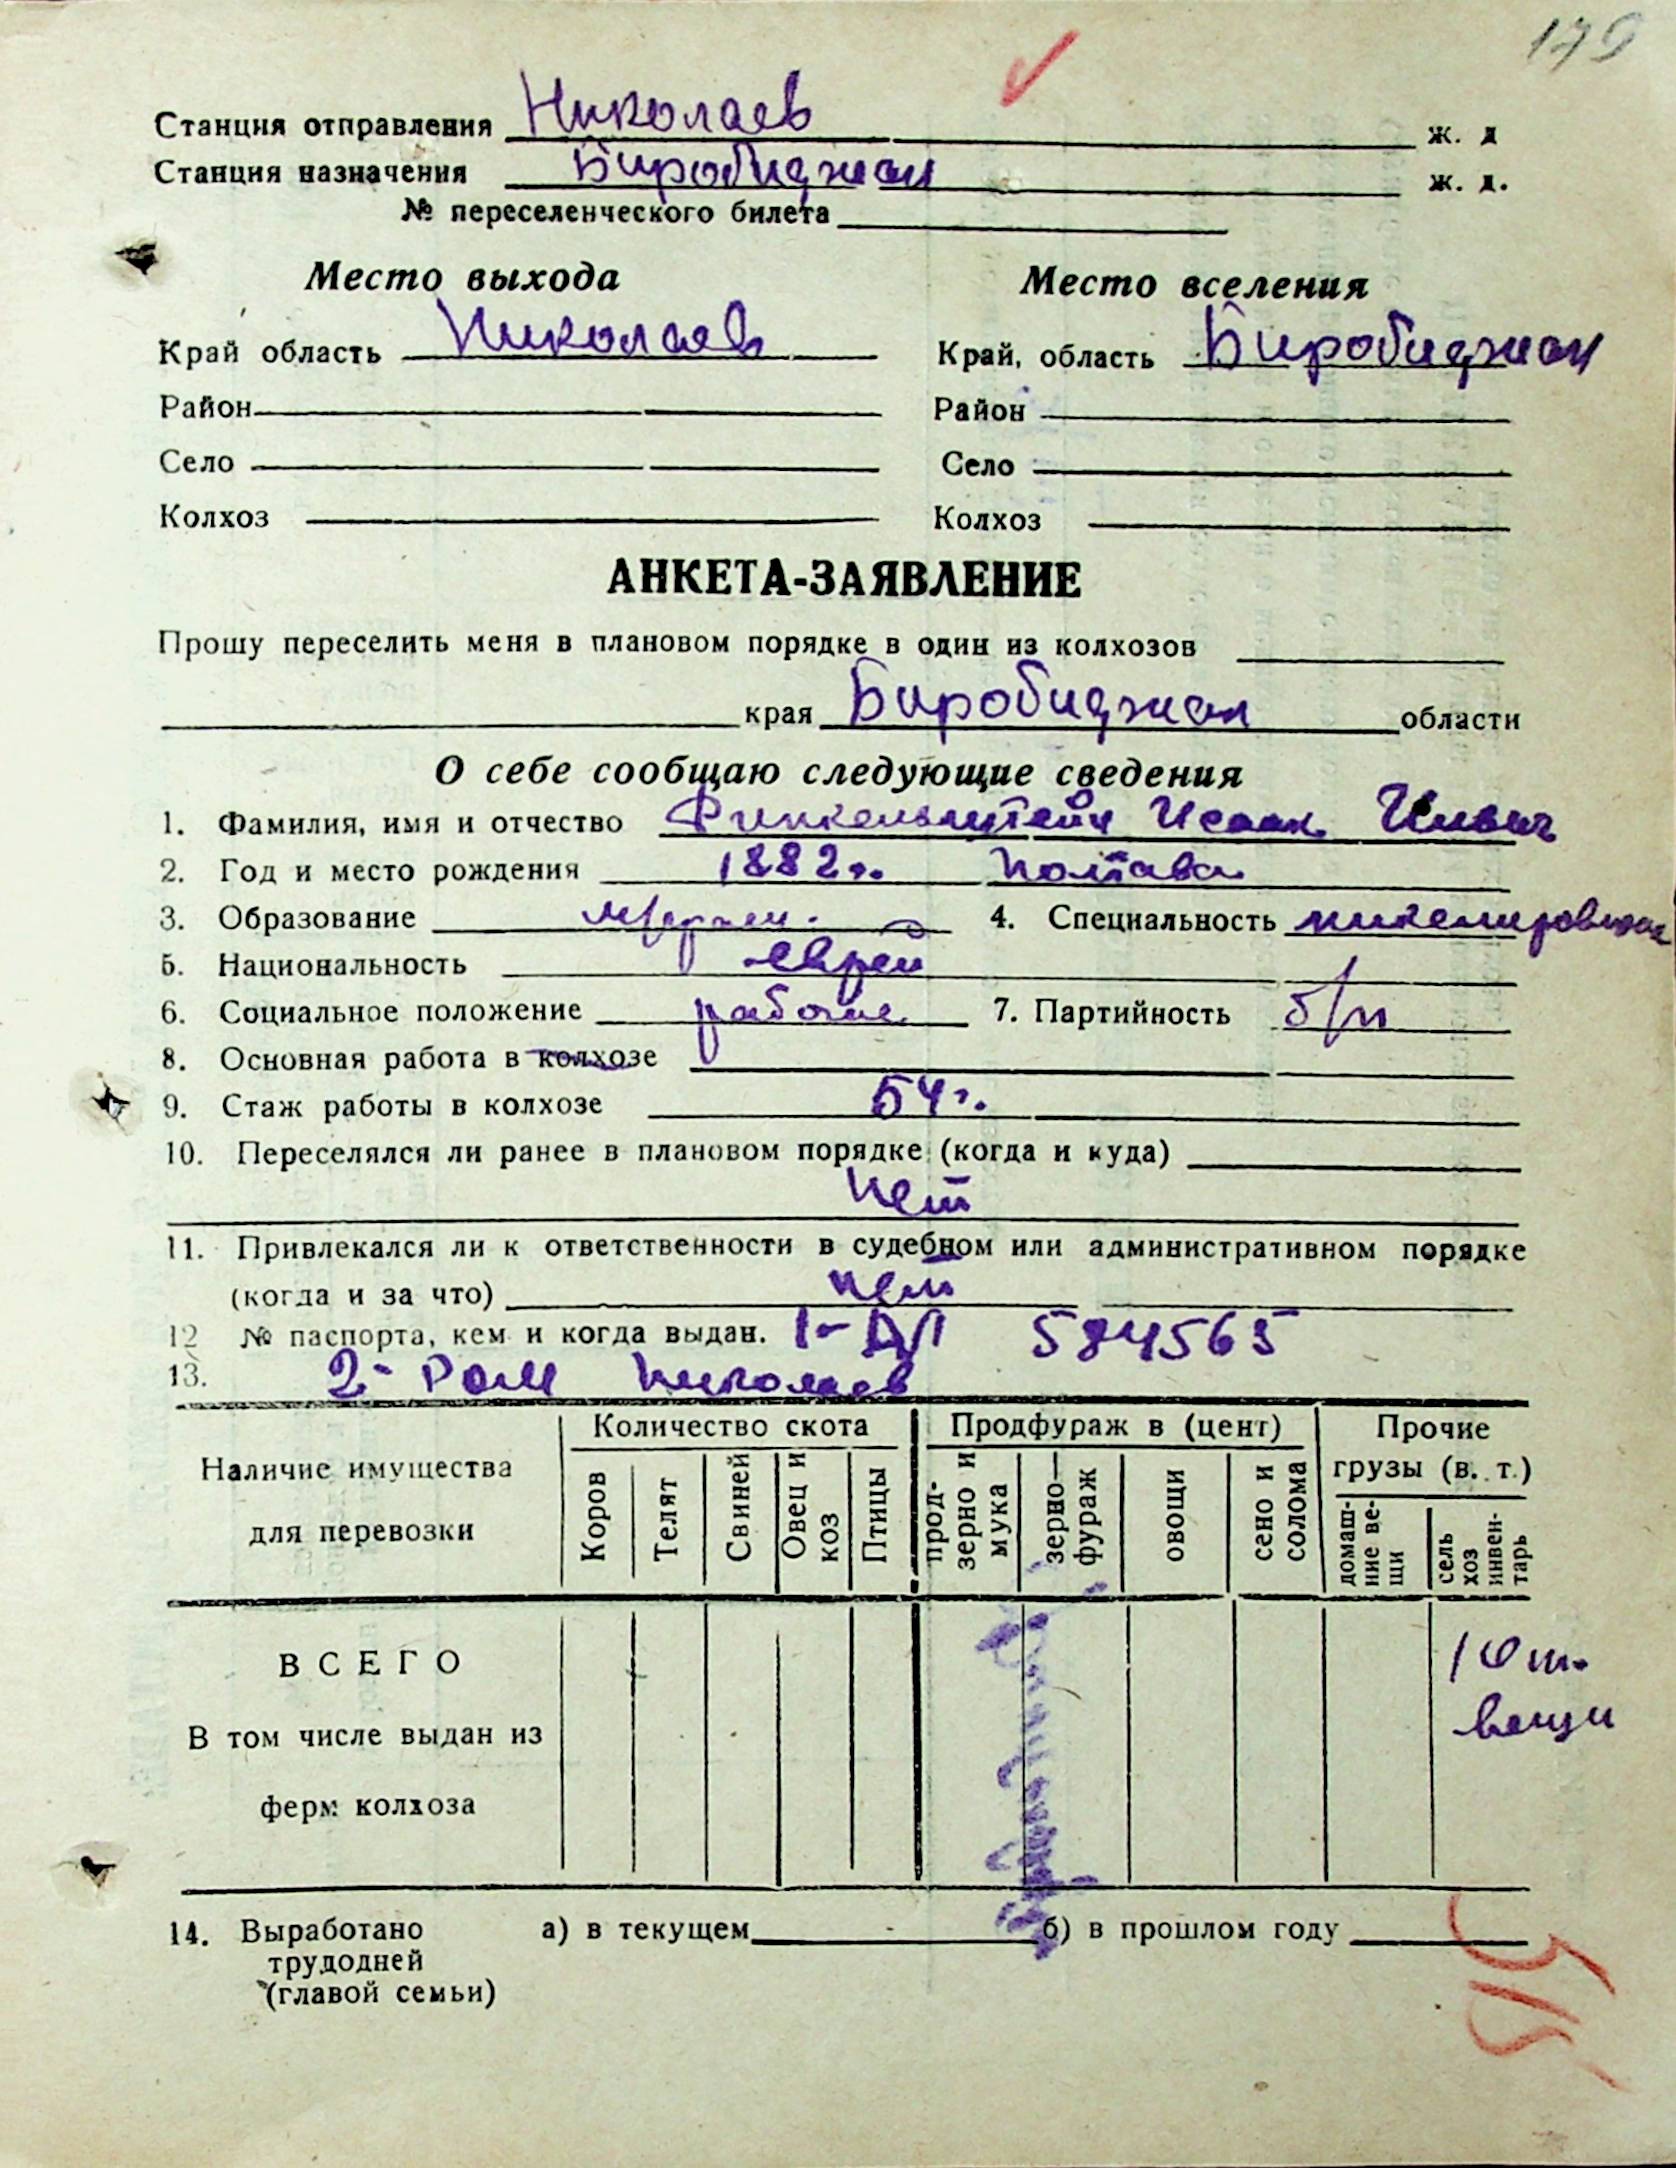 179
Станция отправления Николаев ж. д
Станция назначения Биробиджан ж. д.
№ переселенческого билета
Место выхода Место вселения
Край область Николаев Край, область Биробиджан
Район Район
Село Село
Колхоз Колхоз
АНКЕТА-ЗАЯВЛЕНИЕ
Прошу переселить меня в плановом порядке в один из колхозов
края Биробиджан области
О себе сообщаю следующие сведения
1. Фамилия, имя и отчество Финкельштейн Исаак
2. Год и место рождения 1882 г. Полтава
3. Образование 4. Специальность никелировщик
5. Национальность еврей
6. Социальное положение рабочий 7. Партийность б/п
8. Основная работа в колхозе
9. Стаж работы в колхозе 54 г.
10. Переселялся ли ранее в плановом порядке (когда и куда)
нет
11. Привлекался ли к ответственности в судебном или административном порядке
(когда и за что) нет
12 № паспорта, кем и когда выдан. 584565
13. 2- РОМ Николаев
Наличие имущества для перевозки Количество скота Продфураж в (цент) Прочие грузы (в. т.)
Коров Телят Свиней Овец и коз Птицы прод-зерно и мука зерно—фураж овощи сено и солома домаш-ние ве-щи сель хоз инвен-тарь
ВСЕГО 10 т.
В том числе выдан из вещи
ферм колхоза
14. Выработано а) в текущем б) в прошлом году
трудодней
(главой семьи)
515